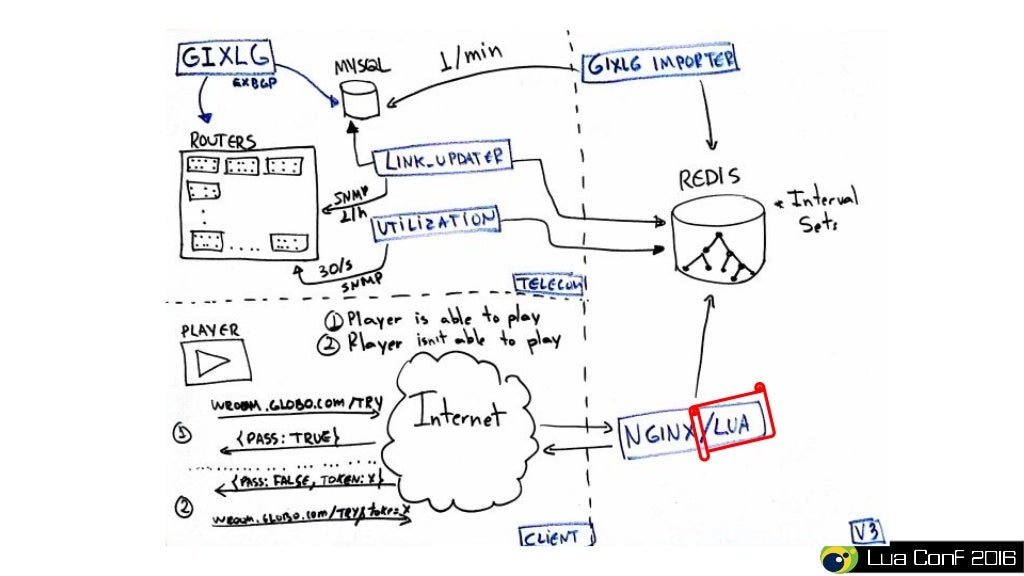 GIXLG
EXBGP
MYSQL
1/min
GIXLG IMPORTER
ROUTERS
LINK_UPDATER
SNMP
UTILIZATION
30/s
SNMP
TELECOM
REDIS
* Interval
Sets
① Player is able to play
② Player isn't able to play
PLAYER
Internet
WROOM.GLOBO.COM/TRY
①
{PASS: TRUE}
{PASS: FALSE, TOKEN: X}
②
WROOM.GLOBO.COM/TRY
NGINX/LUA
CLIENT
V3
Lua Conf 2016